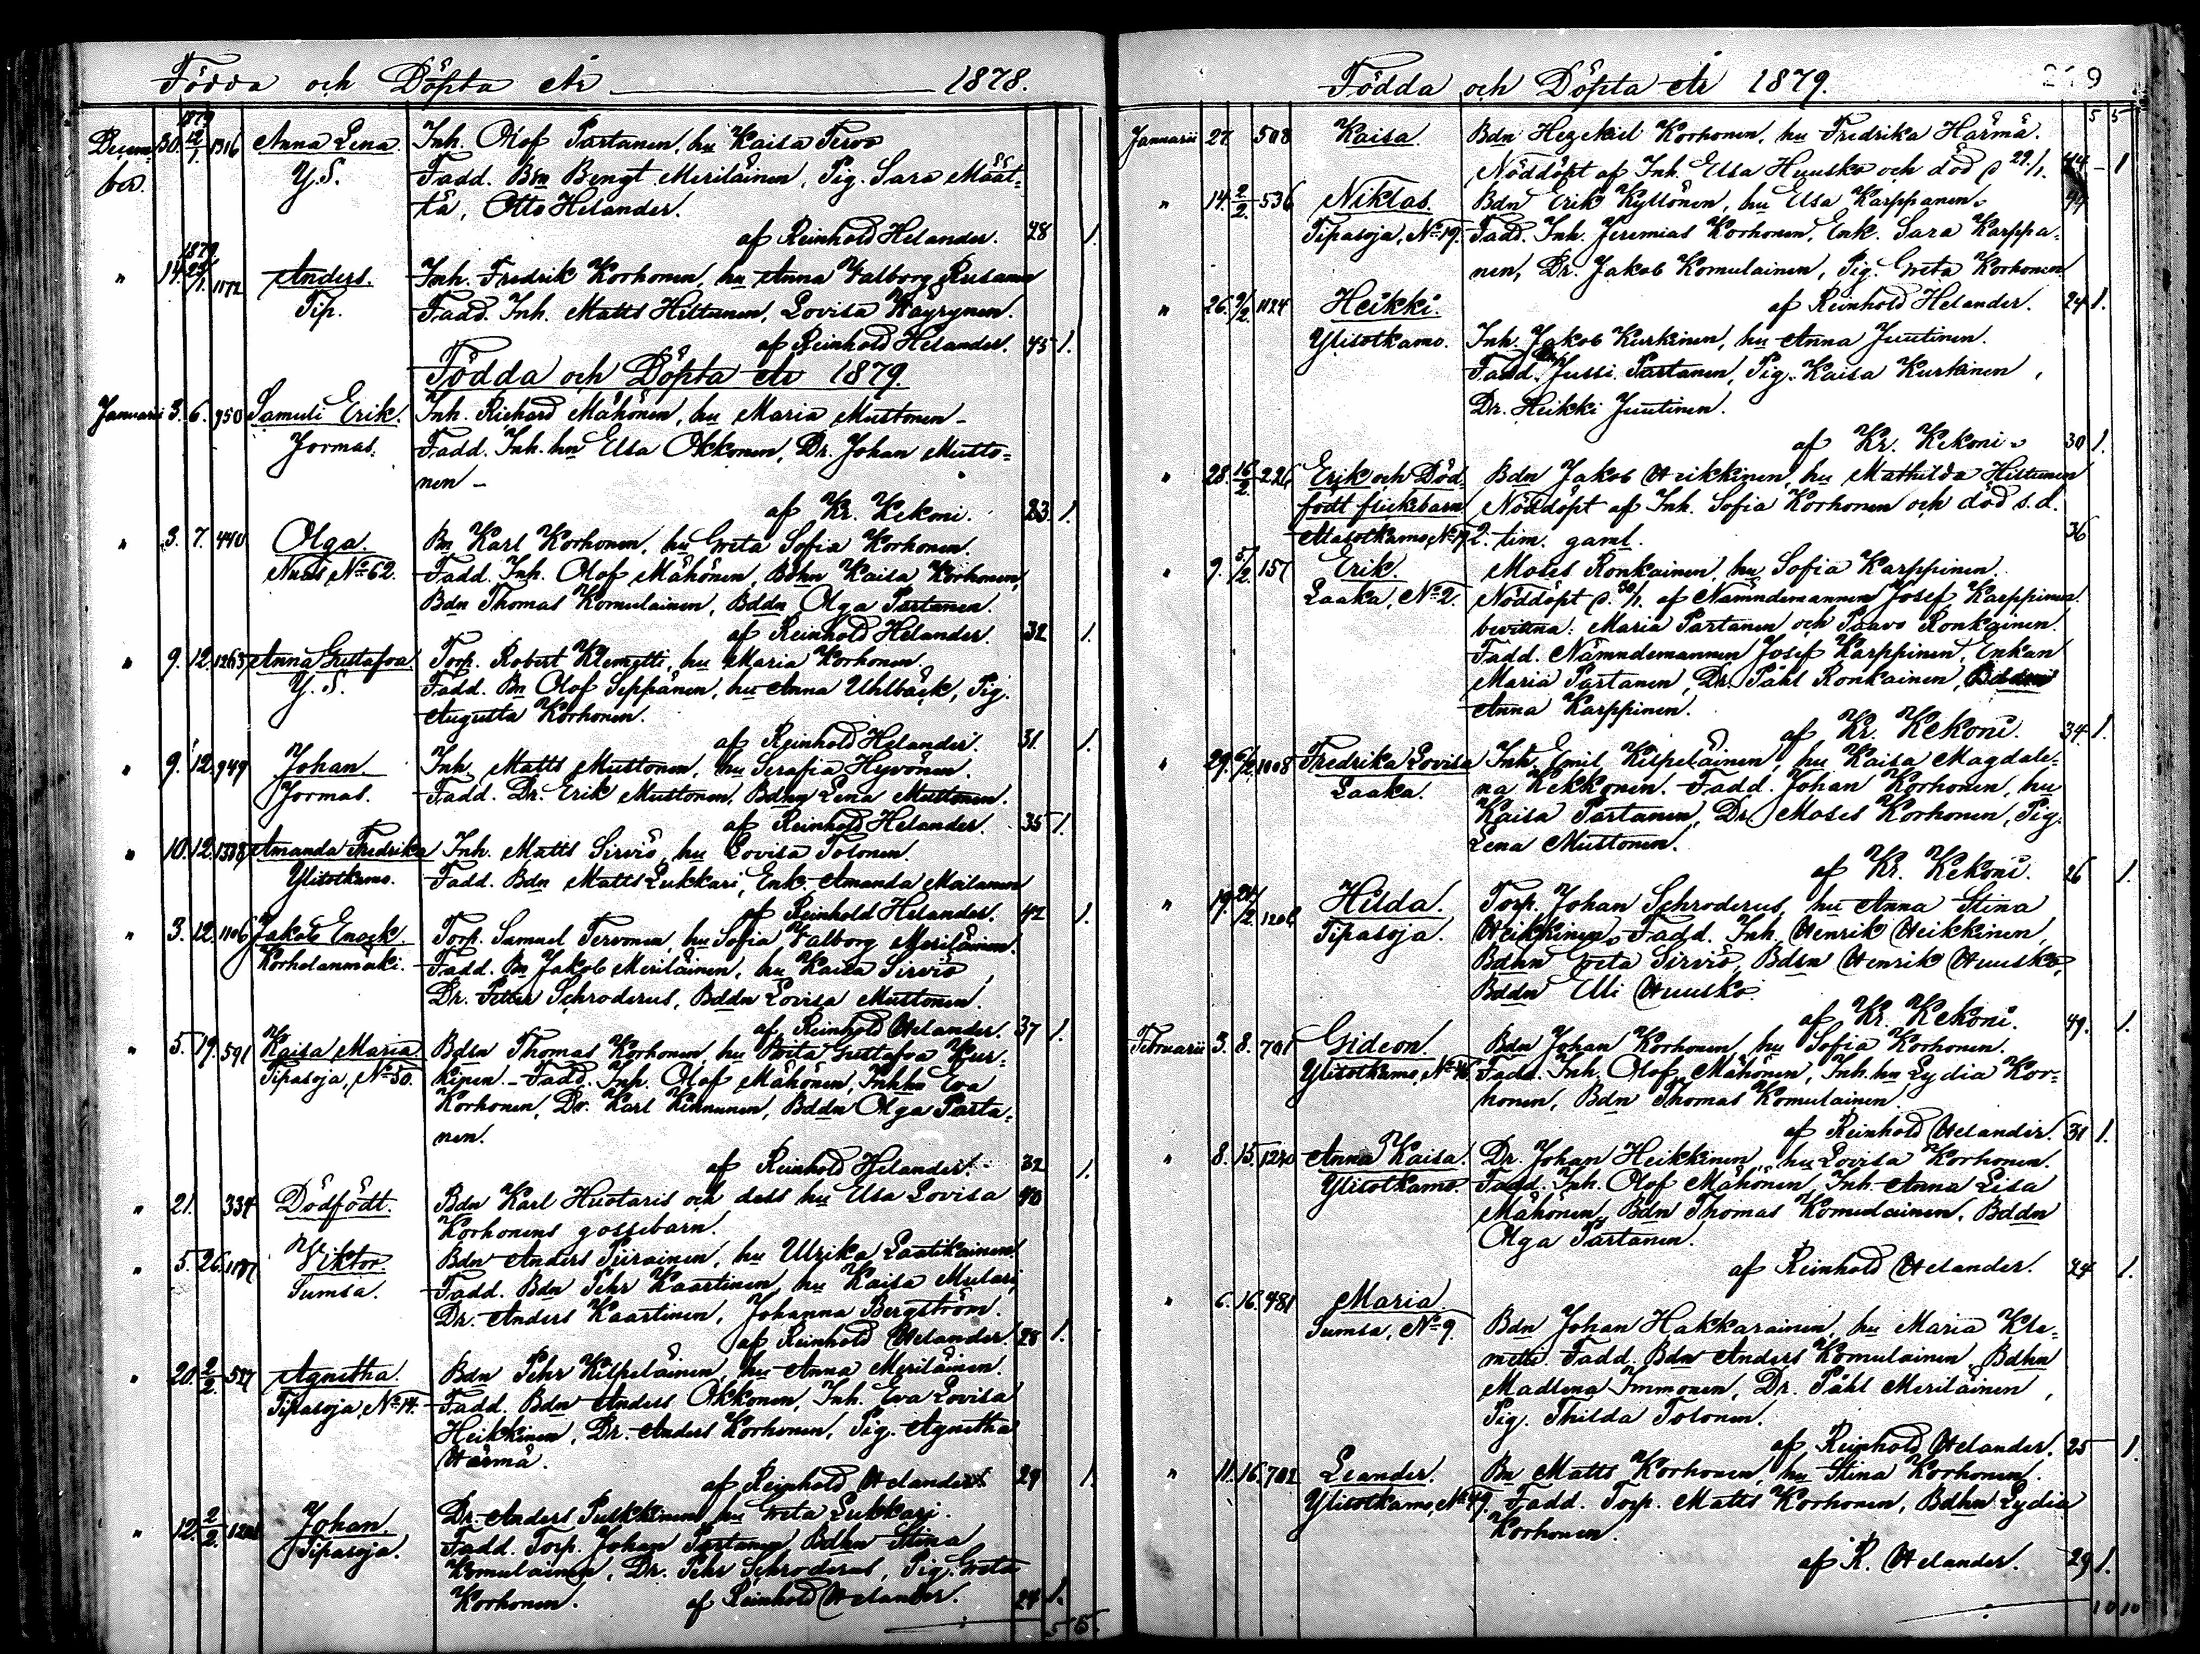 Födda och Döpta År 1878.
Decem- 30. 1879 12/1. 1316 Anna Lena. Inh. Olof Partanen, hu Kaisa Tervo
ber. Y.S. Fadd. Bdn Bengt Meriläinen, Pig. Sara Määt-
tä, Otto Helander.
af Reinhold Helander. 28 1.
" 14. 1879 Anders. Inh. Fredrik Korhonen, hu Anna Valborg Rusanen
Tip. Fadd. Inh. Matts Hiltunen, Lovisa Käyrynen.
af Reinhold Helander. 45 1.
Födda och Döpta År 1879.
Januarii 3. 6. 950 Samuli Erik. Inh. Richard Mähönen, hu Maria Mustonen -
Jormas. Fadd. Inh. hu Elsa Okkonen, Dr. Johan Musto-
nen -
af Kr. Kekoni. 23. 1.
" 3. 7. 440 Olga. Bn Karl Korhonen, hu Greta Sofia Korhonen.
Nuas, No 62. Fadd. Inh. Olof Mähönen, Bdhn Kaisa Korhonen,
Bdn Thomas Komulainen, Bddn Olga Partanen.
af Reinhold Helander. 32 1.
" 9. 12. 1263 Anna Gustafva. Torp. Robert Klemetti, hu Maria Korhonen.
Y.S. Fadd. Bn Olof Seppänen, hu Anna Uhlbäck, Pig.
Augusta Korhonen.
af Reinhold Helander. 31. 1.
" 9. 12. 949 Johan. Inh. Matts Mustonen, hu Serafia Hyvönen.
Jormas. Fadd. Dr. Erik Mustonen, Bdhn Lena Mustonen.
af Reinhold Helander. 35 1.
" 10. 12. 1338 Amanda Fredrika Inh. Matts Sirviö, hu Lovisa Tolonen.
Ylisotkamo. Fadd. Bdn Matts Lukkari, Enk. Amanda Moilanen
af Reinhold Helander. 42 1.
" 3. 12. 1106 Jakob Enock. Torp. Samuel Tervonen, hu Sofia Valborg Meriläinen.
Korholanmäki. Fadd. Bn Jakob Meriläinen, hu Kaisa Sirviö,
Dr. Petter Schroderus, Bddn Lovisa Mustonen.
af Reinhold Helander. 37 1.
" 5. 19. 591 Kaisa Maria Bdsn Thomas Korhonen, hu Greta Gustafva Kur-
Tipasoja, No 50. kinen. - Fadd. Inh. Olof Mähönen, Inhhu Eva
Korhonen, Dr. Karl Kinnunen, Bddn Olga Parta-
nen.
af Reinhold Helander. 32 1.
" 21. 334 Dödfödt. Bdn Karl Huotaris och dess hu Elsa Lovisa 40
Korhonens gossebarn.
" 5. 26. Viktor. Bdn Anders Piirainen, hu Ulrika Laatikainen.
Sumsa. Fadd. Bdn Pehr Kaartinen, hu Kaisa Mulari,
Dr. Anders Kaartinen, Johanna Bergström.
af Reinhold Helander. 28 1.
" 20. 2/2. 527 Agnetha. Bdn Pehr Kilpeläinen, hu Anna Meriläinen.
Tipasoja, No 14. Fadd. Bdn Anders Okkonen, Inh. Eva Lovisa
Heikkinen, Dr. Anders Korhonen, Pig. Agnetha
Härmä.
af Reinhold Helander. 29 1.
" 12. 2/2. Johan. Dr. Anders Pulkkinen, hu Greta Lukkari.
Tipasoja. Fadd. Torp. Johan Partanen, Bdhn Stina
Komulainen, Dr. Pehr Schroderus, Pig. Greta
Korhonen. af Reinhold Helander. 24 1.
5 6.
Födda och Döpta År 1879. 219
5 5
Januarii 27. 508 Kaisa. Bdn Hezekiel Korhonen, hu Fredrika Härmä.
Nöddöpt af Inh. Elsa Huusko och död d 29/1. 44 - 1
" 14. 2/2. 536 Niklas. Bdn Erik Kyllönen, hu Elsa Karppanen.
Tipasoja, No 19. Fadd. Inh. Jeremias Korhonen, Enk. Sara Karppa-
nen, Dr. Jakob Komulainen, Pig. Greta Korhonen
af Reinhold Helander. 24 1.
" 26. 9/2. 1124 Heikki.
Ylisotkamo. Inh. Jakob Kurkinen, hu Anna Juutinen.
Fadd. Dr. Jussi Partanen, Pig. Kaisa Kurkinen,
Dr. Heikki Juutinen.
af Kr. Kekoni. 30 1.
" 28. 16/2. 226 Erik och Död- Bdn Jakob Heikkinen, hu Mathilda Hiltunen
födt flickebarn Nöddöpt af Inh. Sofia Korhonen och död s.d.
2. tim. gaml. 36
" 9. 5/2. 157 Erik. Moses Ronkainen, hu Sofia Karppinen.
Laaka, No 2. Nöddöpt d. af Nämndemannen Josef Karppinen.
bevittna: Maria Partanen och Paavo Ronkainen.
Fadd. Nämndemannen Josef Karppinen, Enkan
Maria Partanen, Dr. Påhl Ronkainen,
Anna Karppinen.
af Kr. Kekoni. 34 1.
" 29. 6/2. 1008 Fredrika Lovisa Inh. Emil Kilpeläinen, hu Kaisa Magdale-
Laaka. na Kekkonen. Fadd. Johan Korhonen, hu
Kaisa Partanen, Dr. Moses Korhonen, Pig.
Lena Mustonen.
af Kr. Kekoni. 26 1.
" 19. 24/2. Hilda. Torp. Johan Schroderus, hu Anna Stina
Tipasoja. Heikkinen. Fadd. Inh. Henrik Heikkinen,
Bdhn Greta Sirviö, Bdsn Henrik Huusko,
Bddn Elli Huusko.
af Kr. Kekoni. 49. 1.
Februarii 3. 8. 701 Gideon. Bdn Johan Korhonen, hu Sofia Korhonen.
Ylisotkamo, No Fadd. Inh. Olof Mähönen, Inh. hu Lydia Kor-
honen, Bdn Thomas Komulainen
af Reinhold Helander. 31 1.
" 8. 15. 1240 Anna Kaisa. Dr. Johan Heikkinen, hu Lovisa Korhonen.
Ylisotkamo. Fadd. Inh. Olof Mähönen, Inh. Anna Lisa
Mähönen, Bdn Thomas Komulainen, Bddn
Olga Partanen.
af Reinhold Helander. 24 1.
" 6. 16. 481 Maria.
Sumsa, No 9. Bdn Johan Hakkarainen, hu Maria Kle-
metti. Fadd. Bdn Anders Komulainen, Bdhn
Madlena Immonen, Dr. Påhl Meriläinen,
Pig. Thilda Tolonen.
af Reinhold Helander. 25 1.
" 11. 16. 702 Leander. Bn Matts Korhonen, hu Stina Korhonen.
Ylisotkamo, No 49. Fadd. Torp. Matts Korhonen, Bdhn Lydia
Korhonen.
af R. Helander. 29 1.
10 10